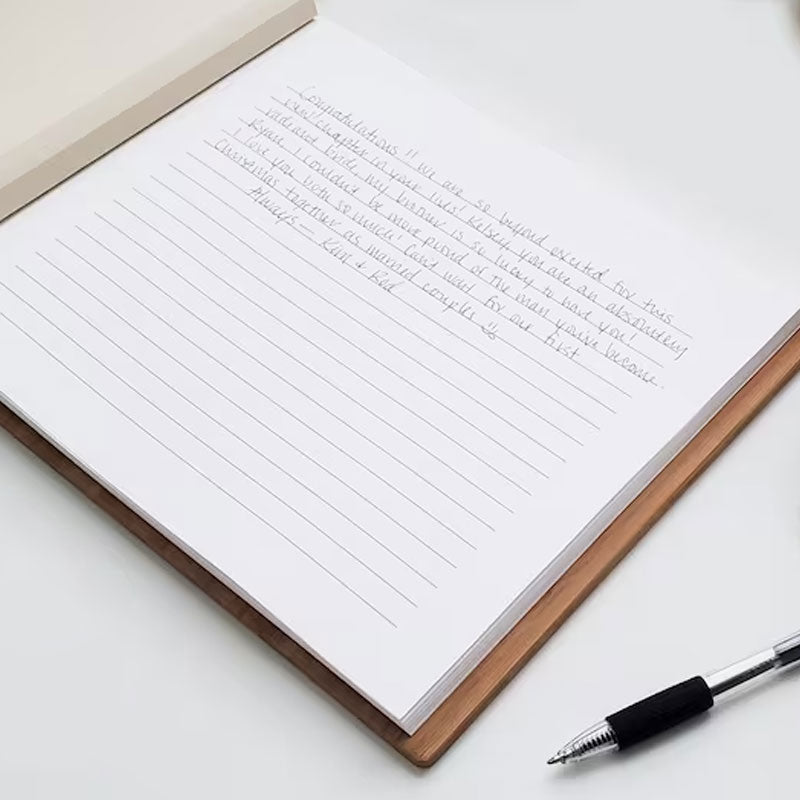 Congratulations!! We are so beyond excited for this
new chapter in your lives! Kelsey, you are an absolutely
radiant bride, my brother is so lucky to have you!
Ryan, I couldn't be more proud of the man you've become.
I love you both so much! Can't wait for our first
Christmas together as married couples
Always —
& Rod